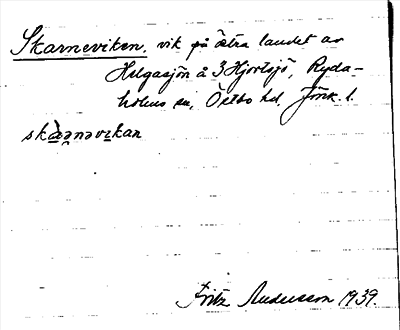 Skarneviken, vik på östra landet av
Hilgasjön å 3 Hjortsjö, Ryda-
holms sn, Östbo hd, Jönk. l.
skànəvikan
Fritz Andersson 1939.